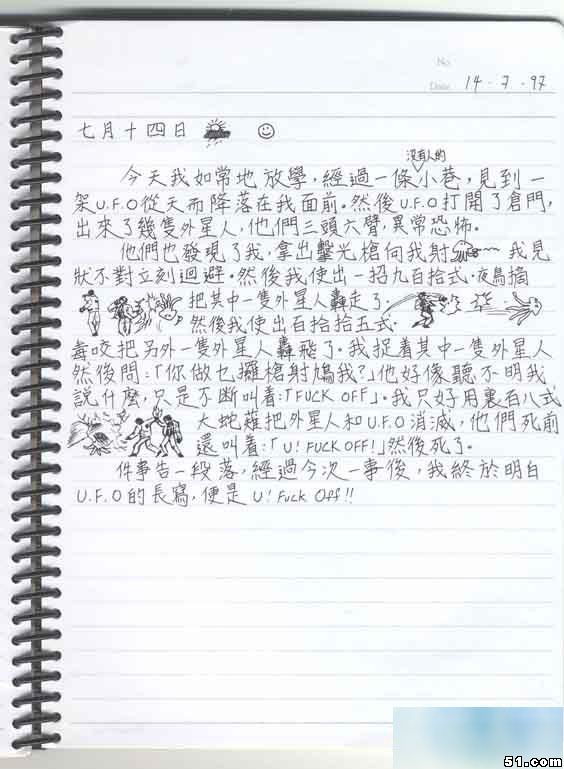 No
Date 14・7・97
七月十四日
没有人的
今天我如常地放學，經過一條小巷，見到一
架U.F.O從天而降落在我面前。然後U.F.O打開了倉門，
出來了幾隻外星人，他們三頭六臂，異常恐怖。
他們也發現了我，拿出擊光槍向我射 我見
狀不對立刻迴避。然後我使出一招九百拾式・夜鳥摘
把其中一隻外星人轟走了．
然後我使出百拾拾五式・
毒咬把另外一隻外星人轟飛了。我捉着其中一隻外星人
然後問：「你做乜攞槍射鳩我？」他好像聽不明我
說什麼，只是不斷叫着：「FUCK OFF」。我只好用裏百八式
大蛇薙把外星人和U.F.O消滅，他們死前
還叫着：「U! FUCK OFF!」然後死了。
件事告一段落，經過今次一事後，我終於明白
U.F.O的長寫，便是U! Fuck Off!!
51.com